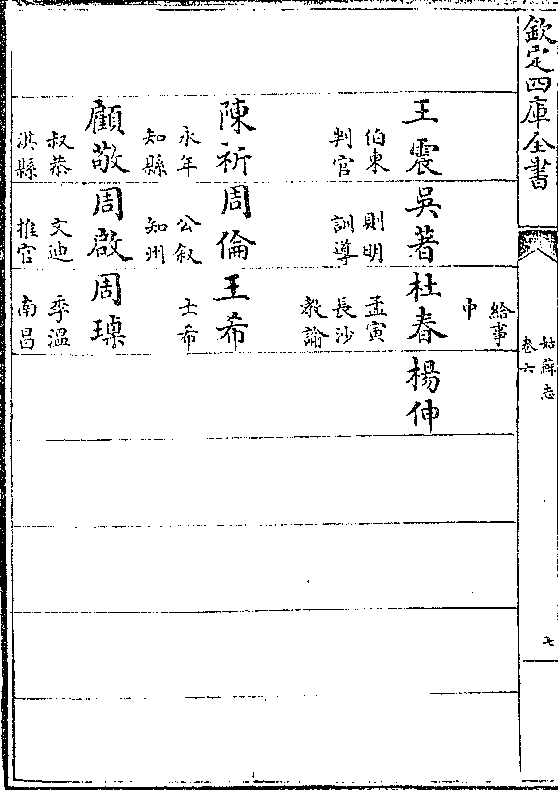 欽定四庫全書
姑蘇志
卷六
七
給事
中
王震 吳著 杜春 楊伸
伯東 則明 孟寅
判官 訓導 長沙
教諭
陳祈 周倫 王希
永年 公叙 士希
知縣 知州
顧敬 周啟 周
叔恭 文迪 季溫
淇縣 推官 南昌